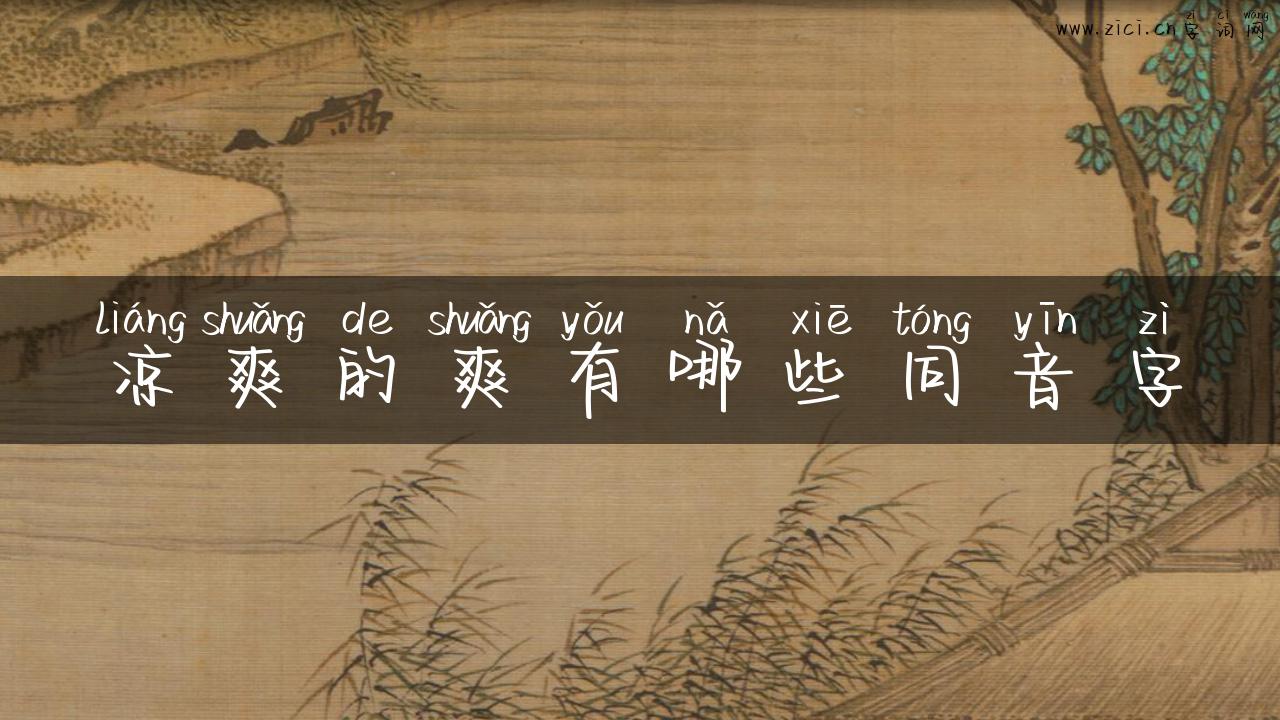 zì cí wǎng
www.zici.cn字词网
liáng shuǎng de shuǎng yǒu nǎ xiē tóng yīn zì
凉爽的爽有哪些同音字